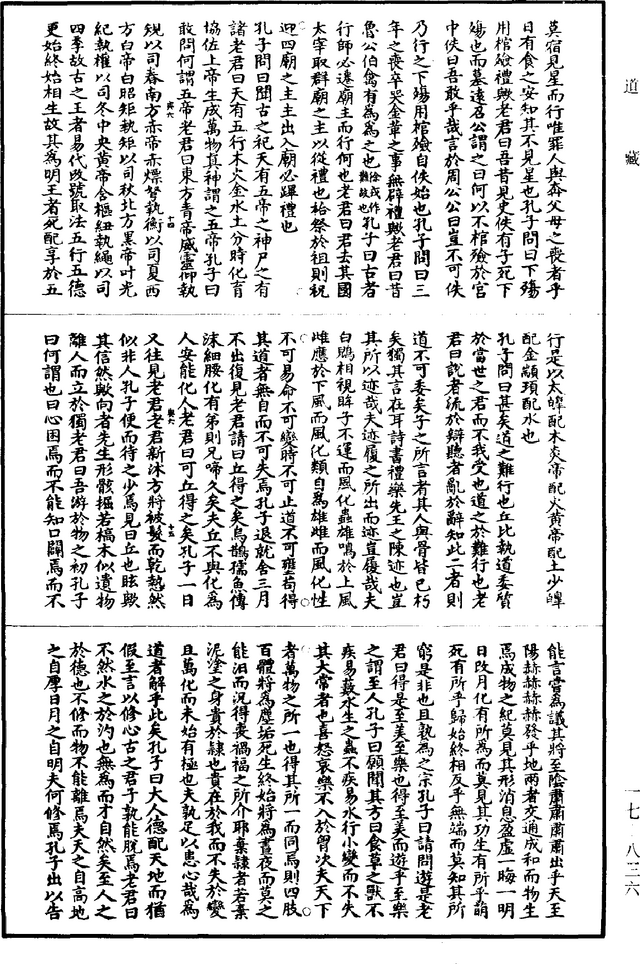 道 藏
莫宿見星而行唯罪人與奔父母之喪者乎
日有食之安知其不見星也孔子問曰下殤
用棺殮禮歟老君曰吾昔見史佚有子死下
殤也而墓遠召公謂之曰何以不棺殮於宮
中佚曰吾敢乎哉言於周公公曰豈不可佚
乃行之下殤用棺殮自佚始也孔子問曰三
年之喪卒哭金革之事無辟禮歟老君曰昔
魯公伯禽有為為之也徐戎作難故也孔子曰古者
行師必遷廟主而行何也老君曰君去其國
太宰取群廟之主以從禮也祫祭於祖則祝
迎四廟之主主出入廟必蹕禮也
孔子問曰聞古之祀天有五帝之神尸之有
諸老君曰天有五行木火金水土分時化育
協佐上帝生成萬物真神謂之五帝孔子曰
敢問何謂五帝老君曰東方青帝威靈仰執
十四
規以司春南方赤帝赤熛弩執衡以司夏西
方白帝白昭矩執矩以司秋北方黑帝叶光
紀執權以司冬中央黃帝含樞紐執繩以司
四季故古之王者易代改號取法五行五德
更始終始相生故其為明王者死配享於五
行是以太皞配木炎帝配火黃帝配土少皞
配金顓頊配水也
孔子問曰甚矣道之難行也丘比執道委質
於當世之君而不我受也道之於難行也老
君曰說者流於辯聽者亂於辭知此二者則
道不可委矣子之所言者其人與骨皆已朽
矣獨其言在耳詩書禮樂先王之陳迹也豈
其所以迹哉夫迹履之所出而迹豈履哉夫
白鶂相視眸子不運而風化蟲雄鳴於上風
雌應於下風而風化類自為雄雌而風化性
不可易命不可變時不可止道不可壅苟得
其道者無自而不可失焉孔子退就舍三月
不出復見老君請曰丘得之矣烏鵲孺魚傅
沫細腰化有弟則兄啼久矣夫丘不與化為
人安能化人老君曰可丘得之矣孔子一日
十五
又往見老君老君新沐方將被髮而乾慹然
似非人孔子便而待之少焉見曰丘也眩歟
其信然歟向者先生形骸掘若槁木似遺物
離人而立於獨老君曰吾游於物之初孔子
曰何謂也曰心困焉而不能知口闢焉而不
能言嘗為議其將至陰肅肅肅肅出乎天至
陽赫赫赫赫發乎地兩者交通成和而物生
焉成物之紀莫見其形消息盈虛一晦一明
日改月化有所為而莫見其功生有所乎萌
死有所乎歸始終相反乎無端而莫知其所
窮是非也且孰為之宗孔子曰請問遊是老
君曰得是至美至樂也得至美而遊乎至樂
之謂至人孔子曰願聞其方曰食草之獸不
疾易藪水生之蟲不疾易水行小變而不失
其大常者也喜怒哀樂不入於胷次夫天下
者萬物之所一也得其所一而同焉則四肢
百體將為塵垢死生終始將為晝夜而莫之
能汨而況得喪禍福之所介耶棄隸者若棄
泥塗之身貴於隸也貴在於我而不失於變
且萬化而未始有極也夫孰足以患心哉為
道者解乎此矣孔子曰大人德配天地而猶
假至言以修心古之君子孰能脫焉老君曰
不然水之於汋也無為而才自然矣至人之
於德也不修而物不能離焉夫天之自高地
之自厚日月之自明夫何修焉孔子出以告
一七·八三六